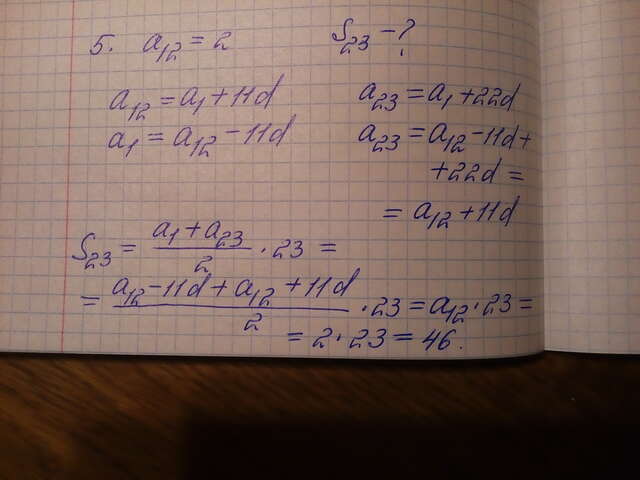 5. a₁₂ = 2 S₂₃ - ?
a₁₂ = a₁ + 11d
a₁ = a₁₂ - 11d
a₂₃ = a₁ + 22d
a₂₃ = a₁₂ - 11d +
+ 22d =
= a₁₂ + 11d
S₂₃ = (a₁ + a₂₃)/2 · 23 =
= (a₁₂ - 11d + a₁₂ + 11d)/2 · 23 = a₁₂ · 23 =
= 2 · 23 = 46.